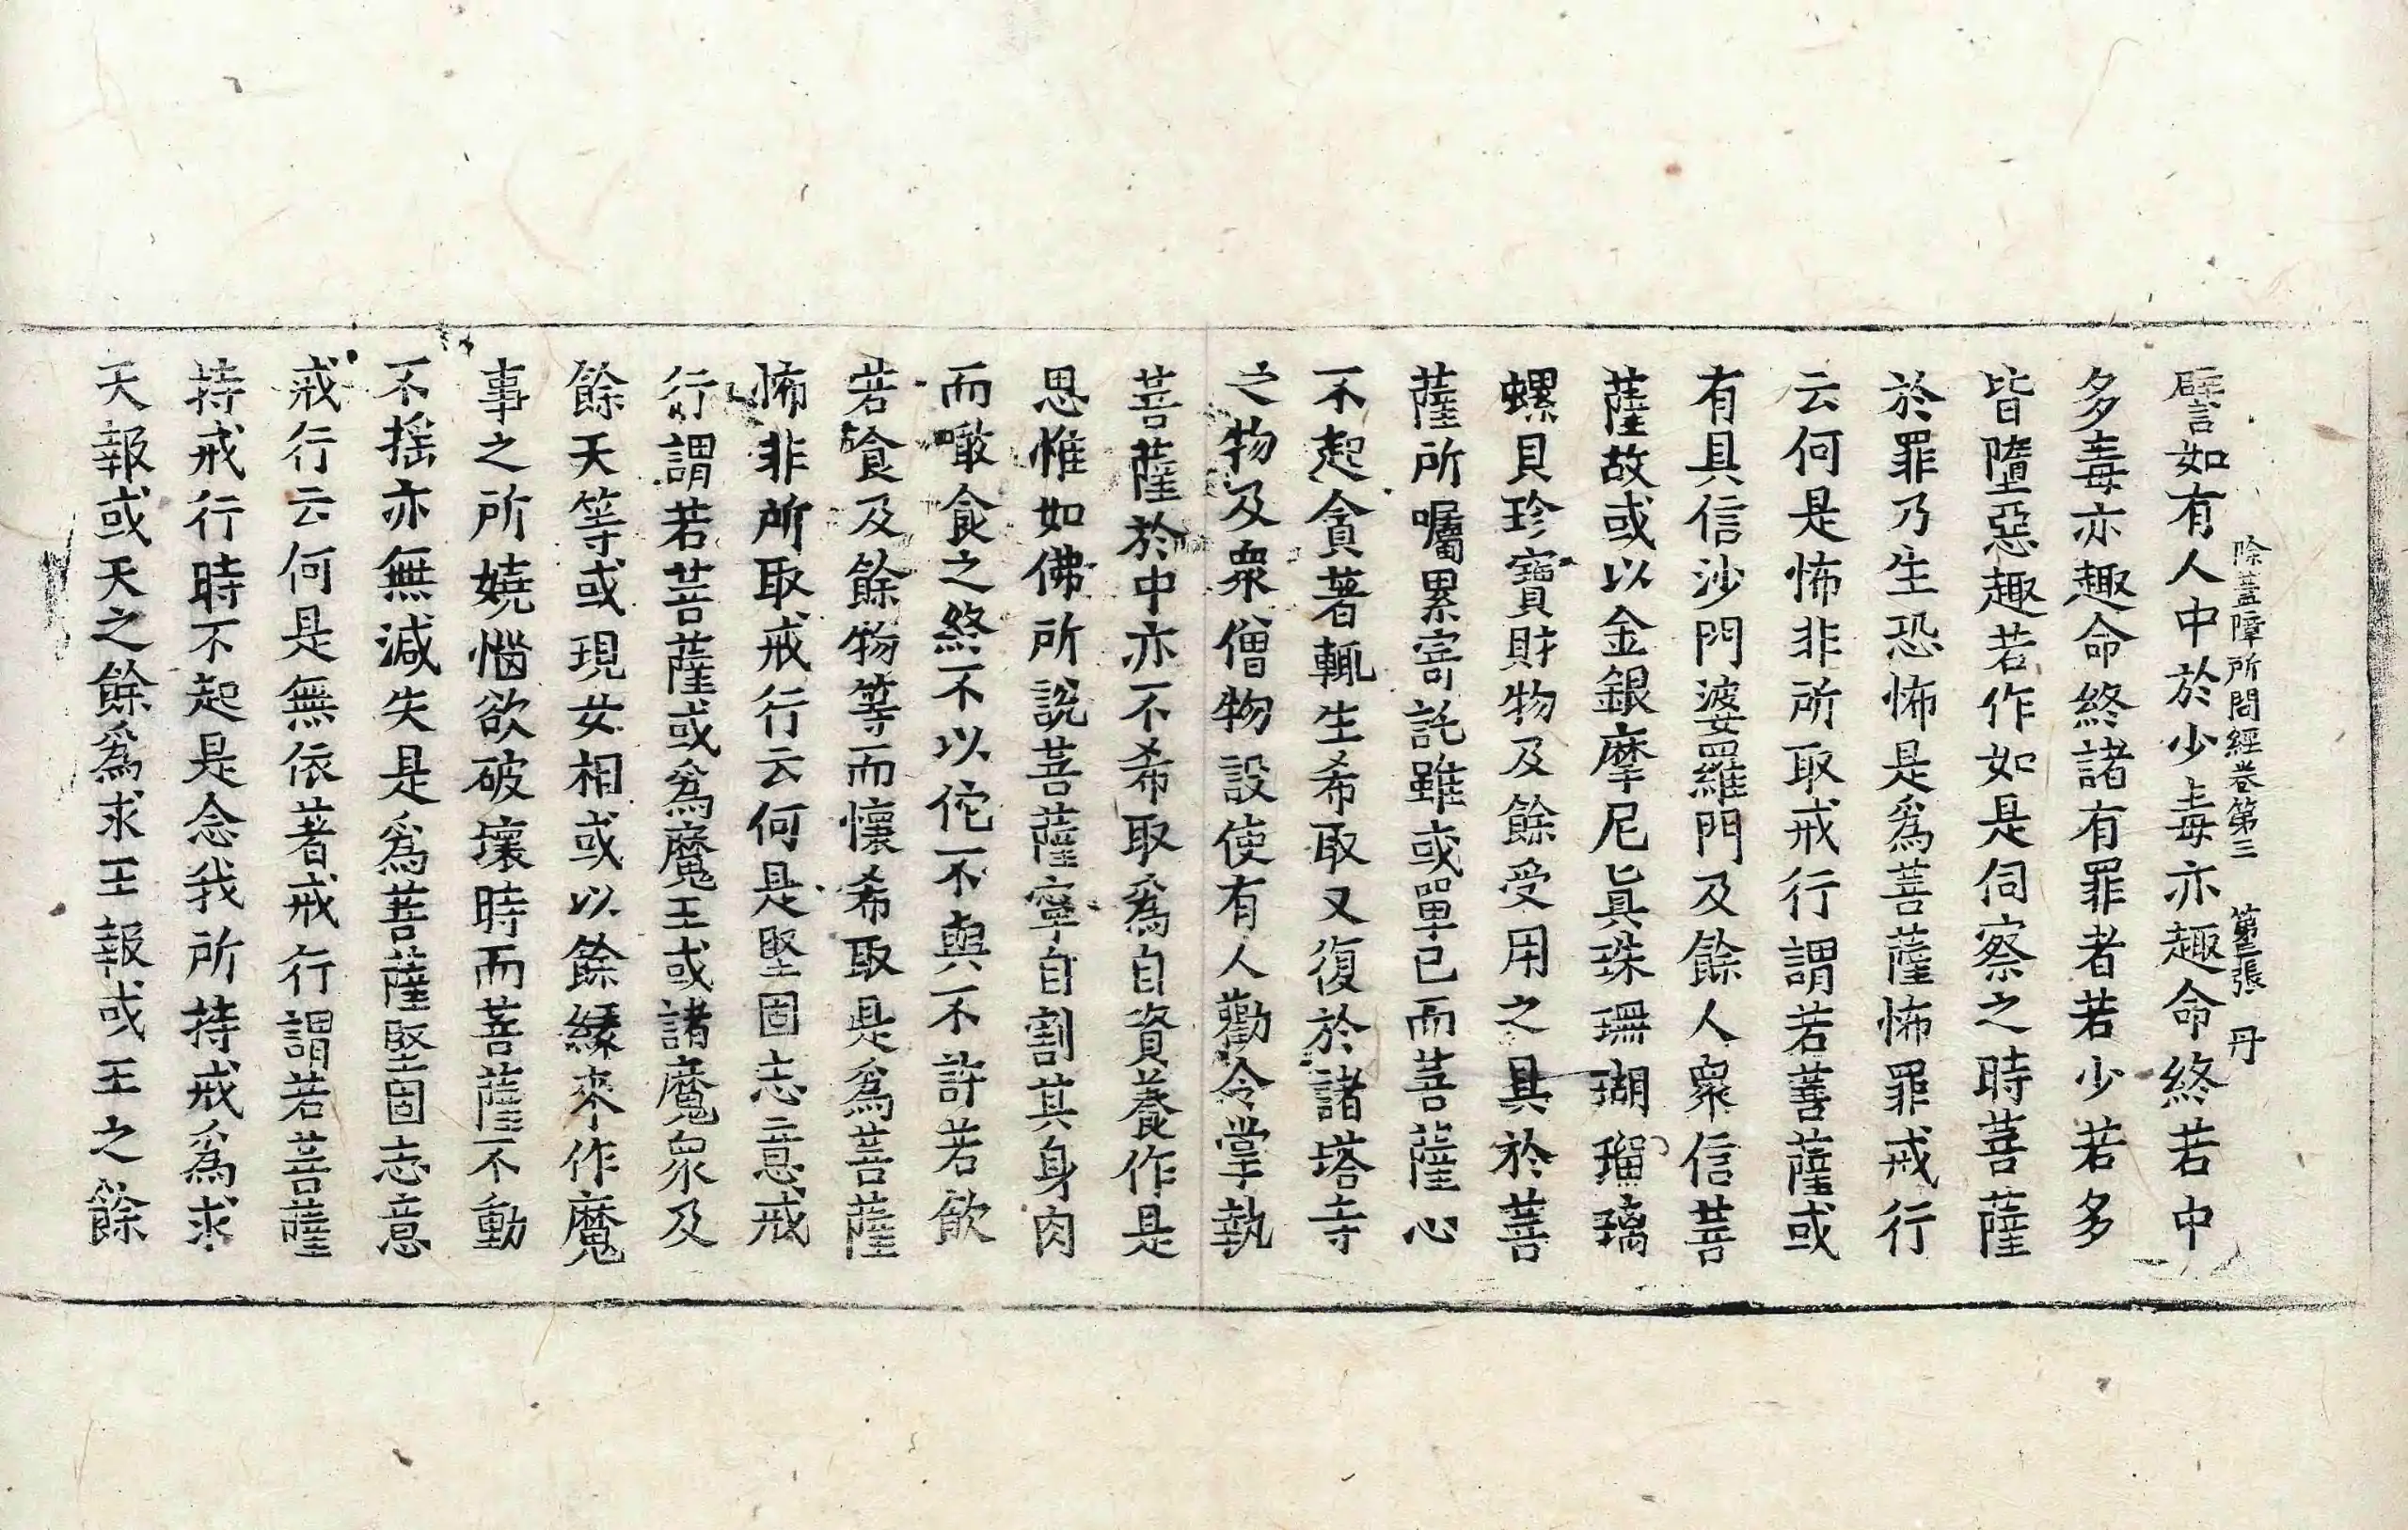 除蓋障所問經卷第三 第三張 丹
譬如有人中於少毒亦趣命終若中
多毒亦趣命終諸有罪者若少若多
皆墮惡趣若作如是伺察之時菩薩
於罪乃生恐怖是爲菩薩怖罪戒行
云何是怖非所取戒行謂若菩薩或
有具信沙門婆羅門及餘人衆信菩
薩故或以金銀摩尼眞珠珊瑚瑠璃
螺貝珍寶財物及餘受用之具於菩
薩所囑累寄託雖或單己而菩薩心
不起貪著輒生希取又復於諸塔寺
之物及衆僧物設使有人勸令掌執
菩薩於中亦不希取爲自資養作是
思惟如佛所說菩薩寧自割其身肉
而噉食之終不以佗不與不許若飲
若食及餘物等而懷希取是爲菩薩
怖非所取戒行云何是堅固志意戒
行謂若菩薩或爲魔王或諸魔衆及
餘天等或現女相或以餘緣來作魔
事之所嬈惱欲破壞時而菩薩不動
不搖亦無減失是爲菩薩堅固志意
戒行云何是無依著戒行謂若菩薩
持戒行時不起是念我所持戒爲求
天報或天之餘爲求王報或王之餘